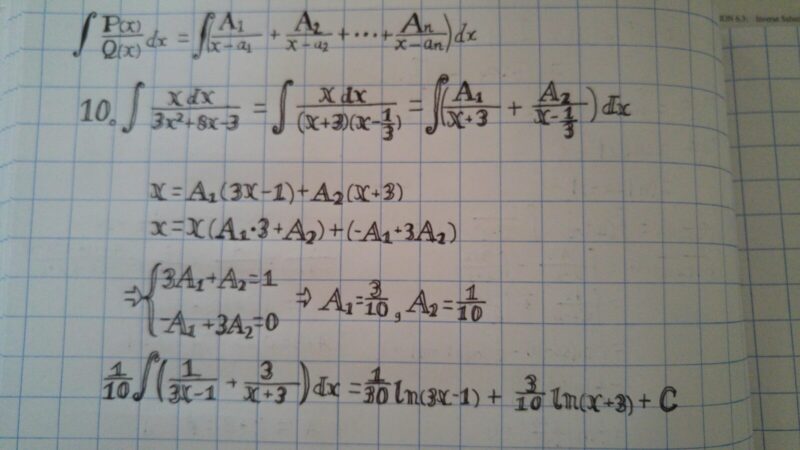 ∫ P(x)/Q(x) dx = ∫(A₁/(x-a₁) + A₂/(x-a₂) + ... + Aₙ/(x-aₙ))dx
ION 6.3: Inverse
10. ∫ x dx/(3x²+8x-3) = ∫ x dx/((x+3)(x-1/3)) = ∫(A₁/(x+3) + A₂/(x-1/3)) dx
x = A₁(3x-1) + A₂(x+3)
x = x(A₁·3+A₂) + (-A₁+3A₂)
⇒ { 3A₁+A₂=1
-A₁+3A₂=0 ⇒ A₁=3/10, A₂=1/10
1/10 ∫(1/(3x-1) + 3/(x+3)) dx = 1/30 ln(3x-1) + 3/10 ln(x+3) + C